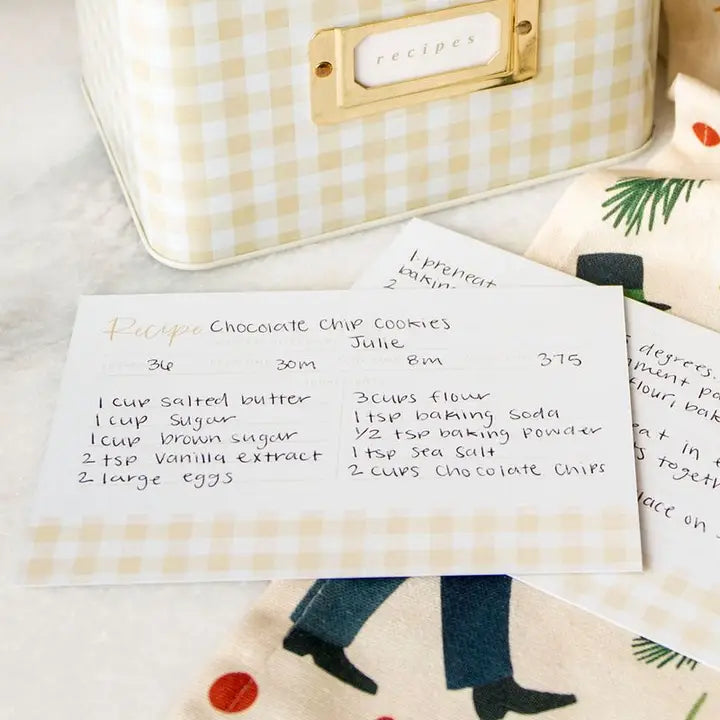 recipes
1. preheat
baking
2
Recipe Chocolate Chip Cookies
Julie
36 30m 8m 375
1 cup salted butter
1 cup sugar
1 cup brown sugar
2 tsp vanilla extract
2 large eggs
3 cups flour
1 tsp baking soda
1/2 tsp baking powder
1 tsp sea salt
2 cups chocolate chips
degrees.
flour, bak
at in
togeth
lace on